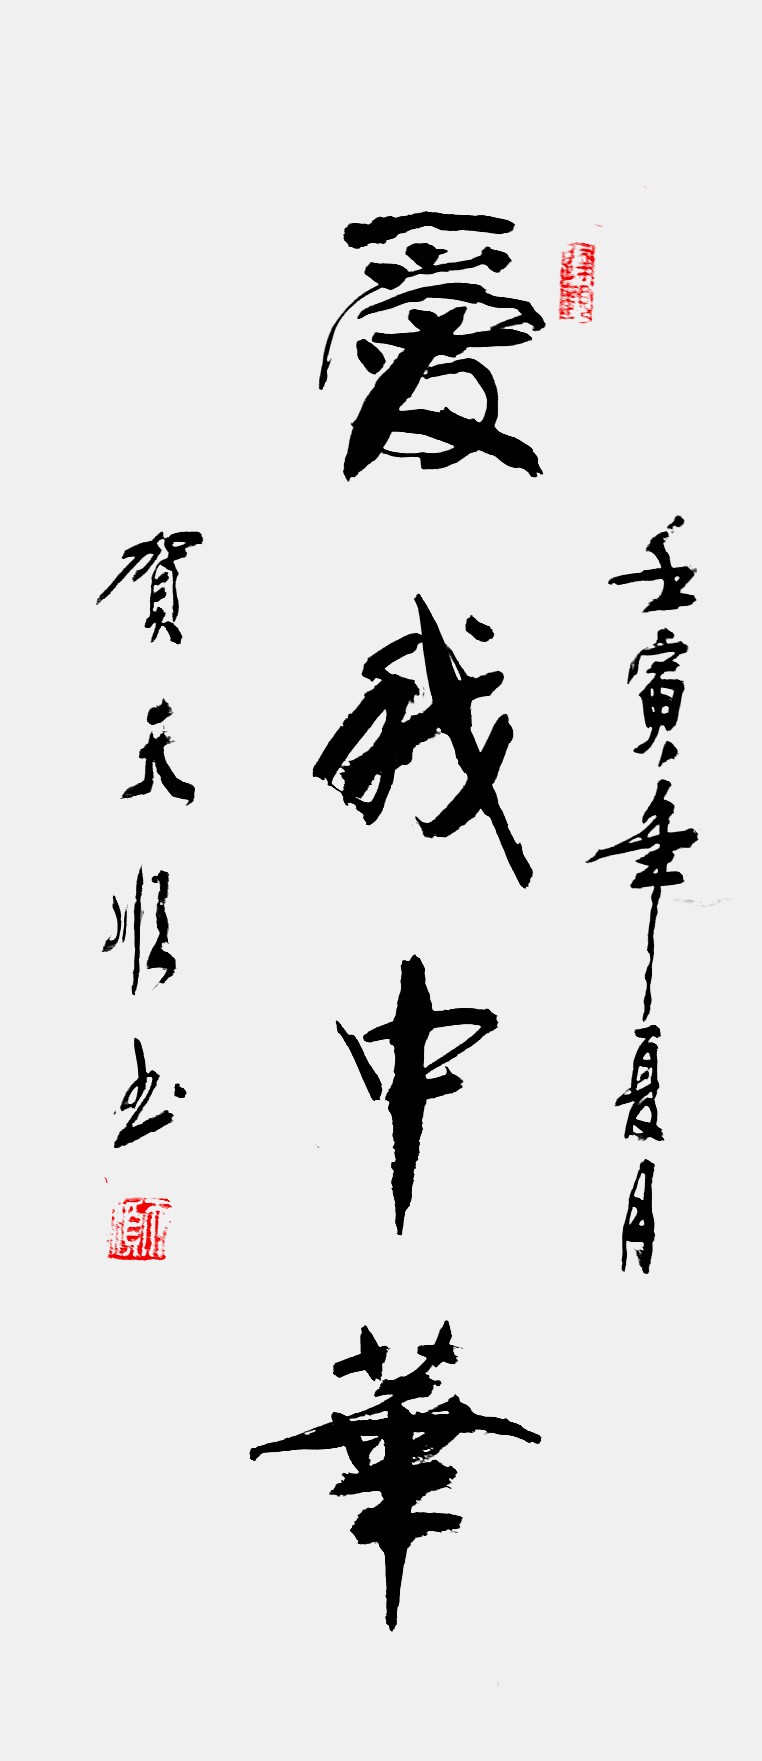 壬寅年夏月
愛我中華
賀天順书